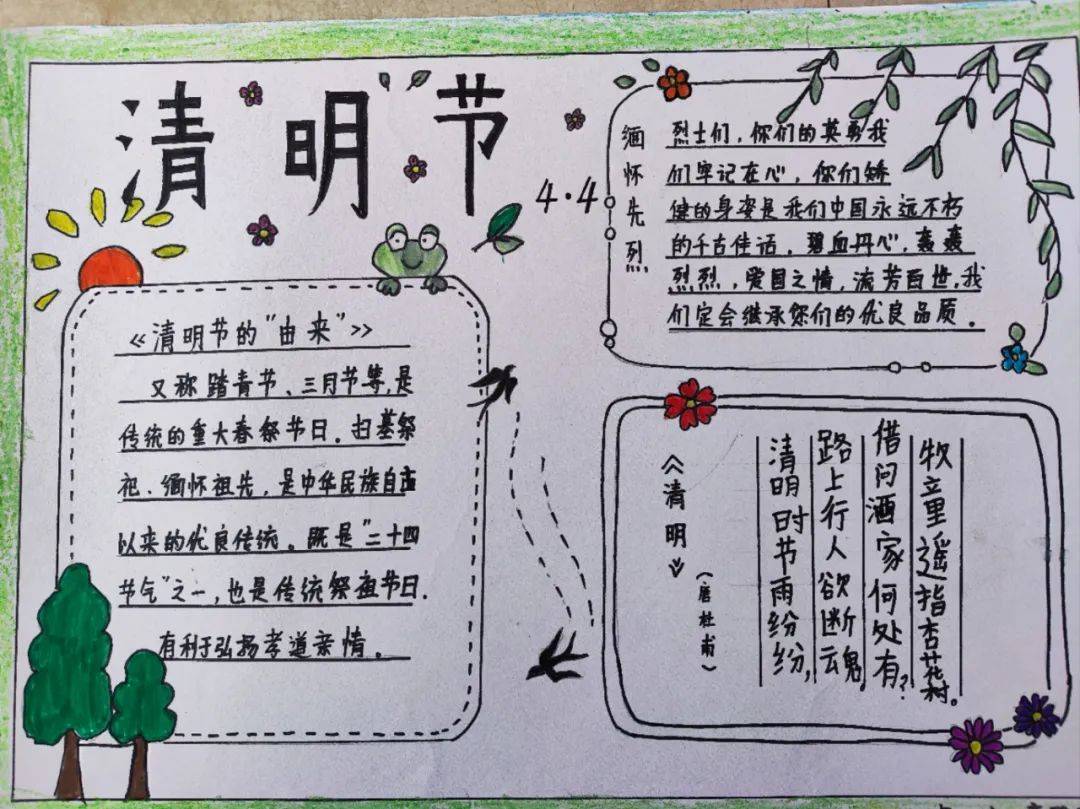 清明节
4·4
《清明节的"由来"》
又称踏青节、三月节等,是
传统的重大春祭节日。扫墓祭
祀、缅怀祖先,是中华民族自古
以来的优良传统。既是"二十四
节气"之一,也是传统祭祖节日.
有利于弘扬孝道亲情。
缅怀先烈
烈士们,你们的英勇我
们牢记在心,你们矫
健的身姿是我们中国永远不朽
的千古佳话。碧血丹心,轰轰
烈烈,爱国之情,流芳百世,我
们定会继承您们的优良品质。
《清明》
(唐杜甫)
清明时节雨纷纷,
路上行人欲断魂,
借问酒家何处有?
牧立里遥指杏花村。